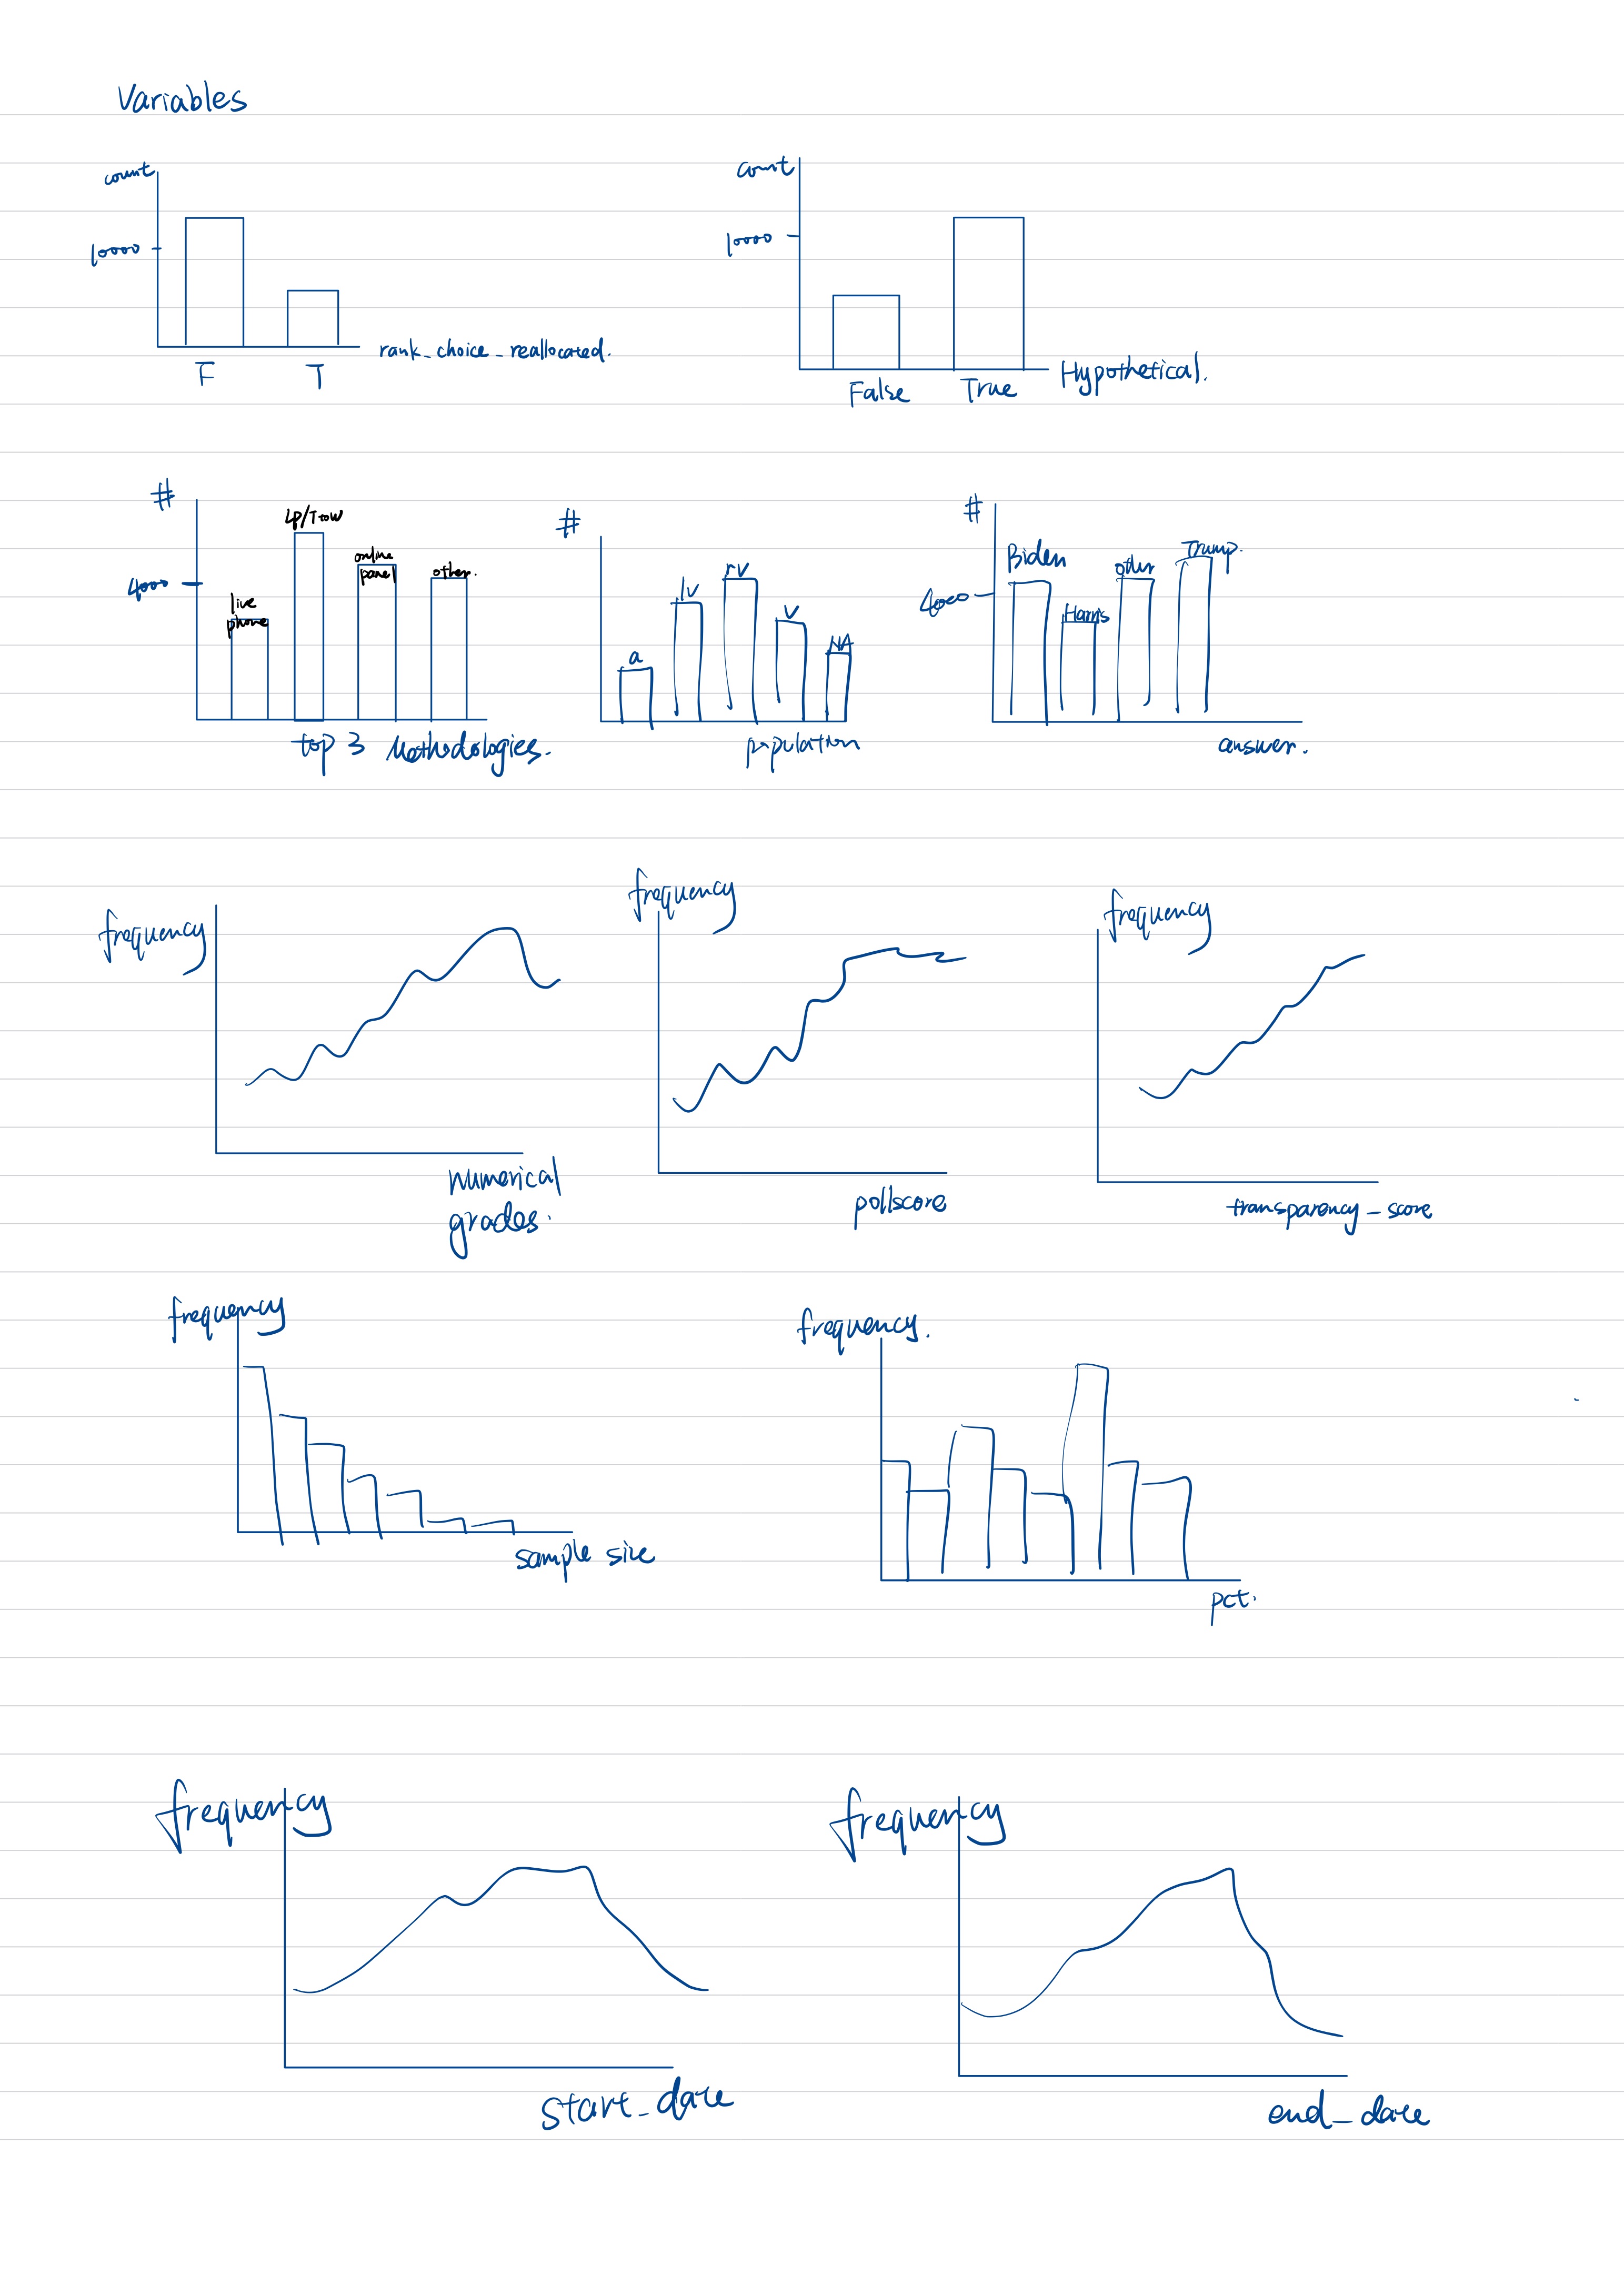 Variables
count
10000
F
T
rank_choice_reallocated.
count
10000
False
True
Hypothetical.
#
4000
live
phone
online
panel
other.
top 3 Methodologies.
#
a
lv
rv
v
NA
population
#
4000
Biden
Harris
other
Trump.
answer.
frequency
numerical
grades.
frequency
pollscore
frequency
transparency_score
frequency
sample size
frequency.
pct.
frequency
start_date
frequency
end_date